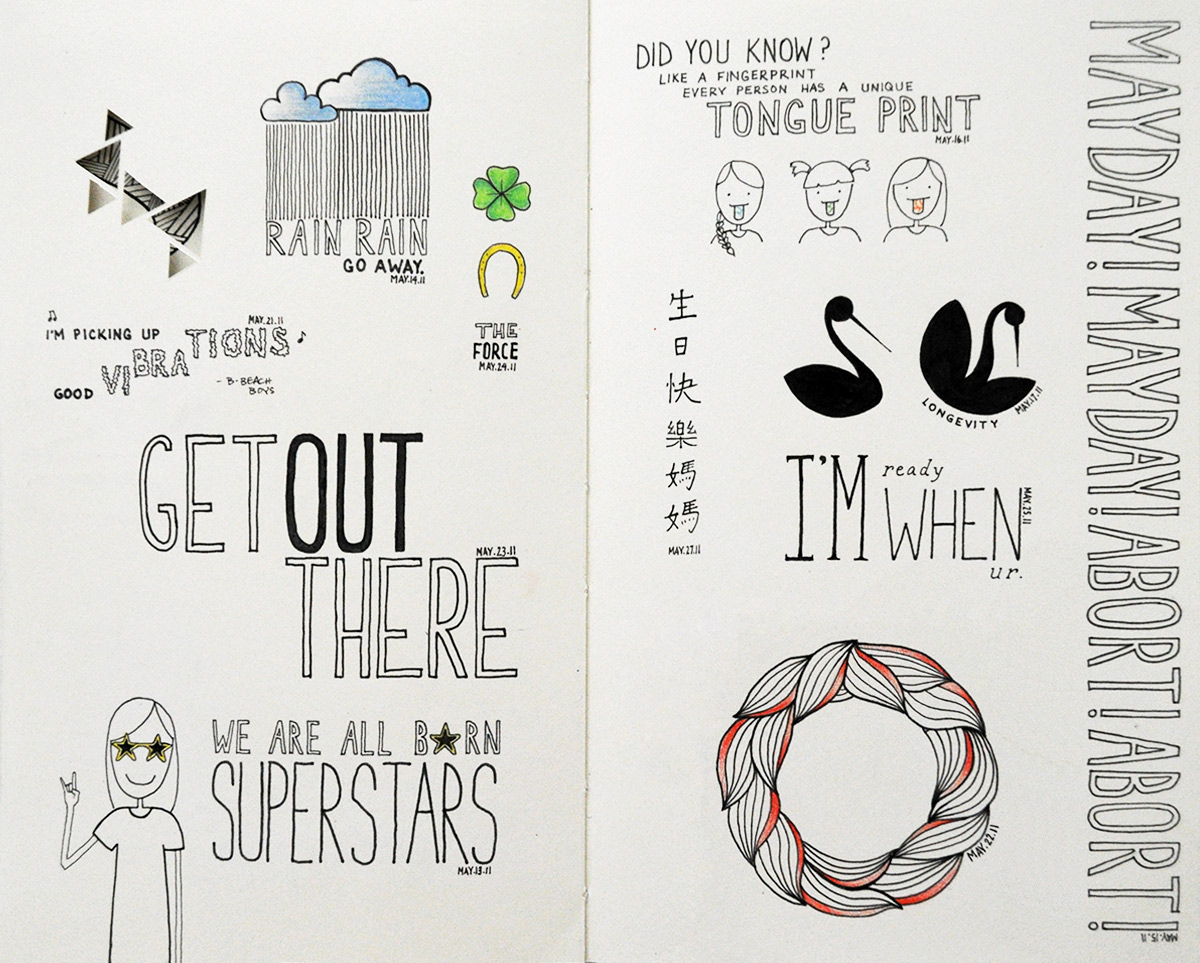 RAIN RAIN
GO AWAY.
MAY.14.11
MAY.21.11
I'M PICKING UP
GOOD VIBRATIONS
- B-BEACH
BOYS
THE
FORCE
MAY.24.11
GET OUT
MAY.23.11
THERE
WE ARE ALL B★RN
SUPERSTARS
MAY.13.11
DID YOU KNOW?
LIKE A FINGERPRINT
EVERY PERSON HAS A UNIQUE
TONGUE PRINT
MAY.16.11
生日快樂媽媽
MAY.27.11
LONGEVITY
MAY.17.11
I'M ready
WHEN
MAY.25.11
ur.
MAY.22.11
MAYDAY! MAYDAY! ABORT! ABORT!
MAY.15.11